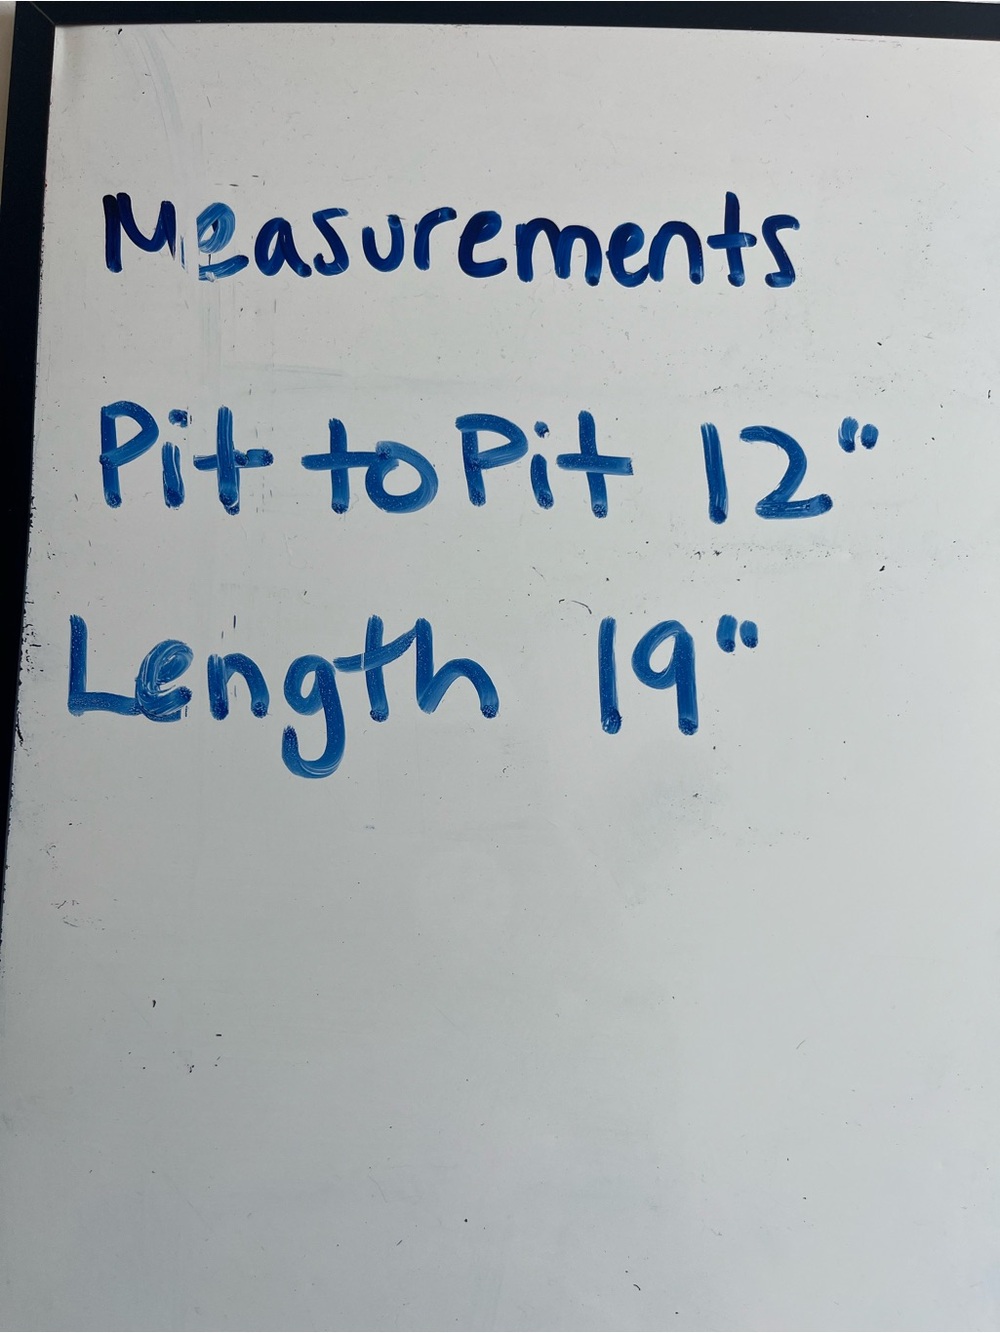 Measurements
Pit to Pit 12"
Length 19"